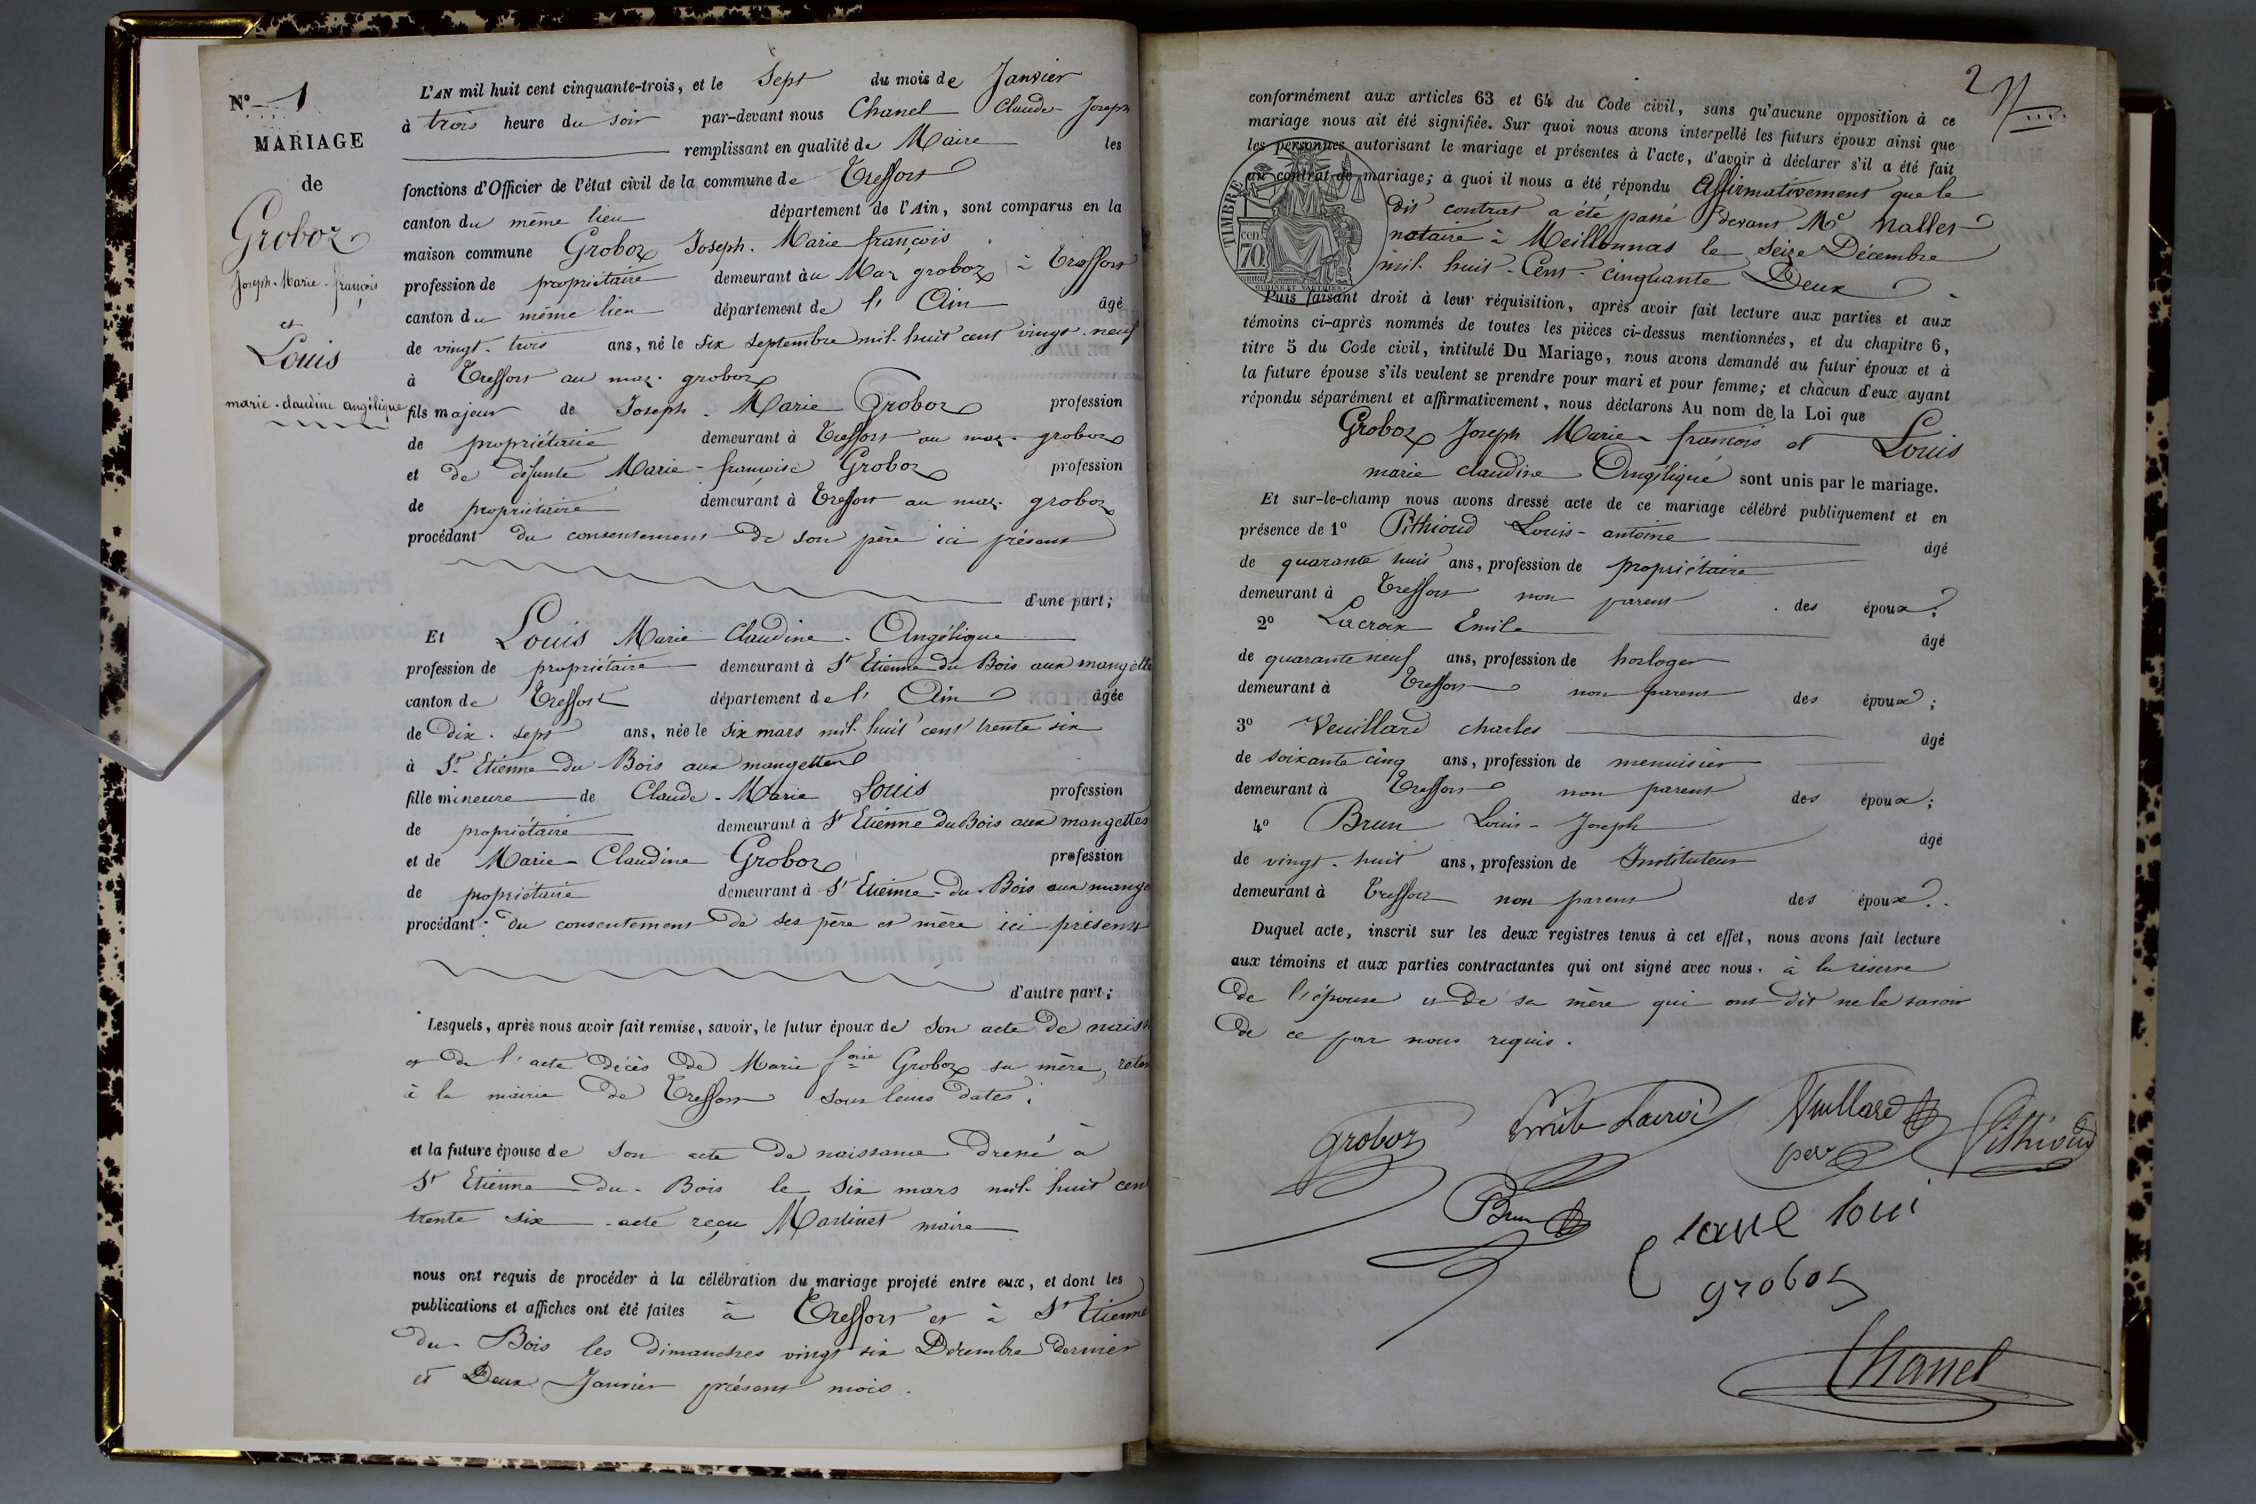 N° 1
MARIAGE
de
Groboz
Joseph-Marie-françois
et
Louis
marie-claudine angélique
L'AN mil huit cent cinquante-trois, et le Sept du mois de Janvier
à trois heure du soir par-devant nous Chanel Claude-Joseph
remplissant en qualité de Maire les
fonctions d'Officier de l'état civil de la commune de Treffort
canton du même lieu département de l'Ain, sont comparus en la
maison commune Groboz Joseph-Marie françois
profession de propriétaire demeurant au Maz groboz à Treffort
canton du même lieu département de l'Ain âgé
de vingt-trois ans, né le six septembre mil huit cent vingt-neuf
à Treffort au maz groboz
fils majeur de Joseph-Marie Groboz profession
de propriétaire demeurant à Treffort au maz groboz
et de défunte Marie-françoise Groboz profession
de propriétaire demeurant à Treffort au maz groboz
procédant du consentement de son père ici présent
d'une part;
Et Louis Marie Claudine-Angélique
profession de propriétaire demeurant à St Etienne du Bois aux mangette
canton de Treffort département de l'Ain âgée
de dix-sept ans, née le six mars mil huit cent trente six
à St Etienne du Bois aux mangettes
fille mineure de Claude-Marie Louis profession
de propriétaire demeurant à St Etienne du Bois aux mangettes
et de Marie-Claudine Groboz profession
de propriétaire demeurant à St Etienne-du Bois aux mange
procédant du consentement de ses père et mère ici présents
d'autre part;
Lesquels, après nous avoir fait remise, savoir, le futur époux de son acte de naiss
et de l'acte décès de Marie foise Groboz sa mère, reten
à la mairie de Treffort sous leurs dates.
et la future épouse de son acte de naissance dressé à
St Etienne-du-Bois le six mars mil huit cen
trente six acte reçu Martinet maire
nous ont requis de procéder à la célébration du mariage projeté entre eux, et dont les
publications et affiches ont été faites à Treffort et à St Etienne
du-Bois les dimanches vingt six Décembre dernier
et Deux Janvier présent mois.
2
conformément aux articles 63 et 64 du Code civil, sans qu'aucune opposition à ce
mariage nous ait été signifiée. Sur quoi nous avons interpellé les futurs époux ainsi que
les personnes autorisant le mariage et présentes à l'acte, d'avoir à déclarer s'il a été fait
un contrat de mariage; à quoi il nous a été répondu Affirmativement que le
dit contrat a été passé devant Me Nallet
notaire à Meillonnas le Seize Décembre
mil-huit-Cent-cinquante Deux
TIMBRE
cen
70
Puis faisant droit à leur réquisition, après avoir fait lecture aux parties et aux
témoins ci-après nommés de toutes les pièces ci-dessus mentionnées, et du chapitre 6,
titre 5 du Code civil, intitulé Du Mariage, nous avons demandé au futur époux et à
la future épouse s'ils veulent se prendre pour mari et pour femme; et chacun d'eux ayant
répondu séparément et affirmativement, nous déclarons Au nom de la Loi que
Groboz Joseph Marie-françois et Louis
marie claudine Angélique sont unis par le mariage.
Et sur-le-champ nous avons dressé acte de ce mariage célébré publiquement et en
présence de 1° Pithioud Louis-antoine âgé
de quarante huit ans, profession de propriétaire
demeurant à Treffort non parent des époux;
2° Lacroix Emile âgé
de quarante neuf ans, profession de horloger
demeurant à Treffort non parent des époux;
3° Veuillard charles âgé
de soixante cinq ans, profession de menuisier
demeurant à Treffort non parent des époux;
4° Brun Louis-Joseph âgé
de vingt-huit ans, profession de Instituteur
demeurant à Treffort non parent des époux.
Duquel acte, inscrit sur les deux registres tenus à cet effet, nous avons fait lecture
aux témoins et aux parties contractantes qui ont signé avec nous. à la réserve
de l'épouse et de sa mère qui ont dit ne le savoir
de ce par nous requis.
groboz Emile Lacroix Vuillard Pithioud
père
Brun
loui
groboz
Chanel